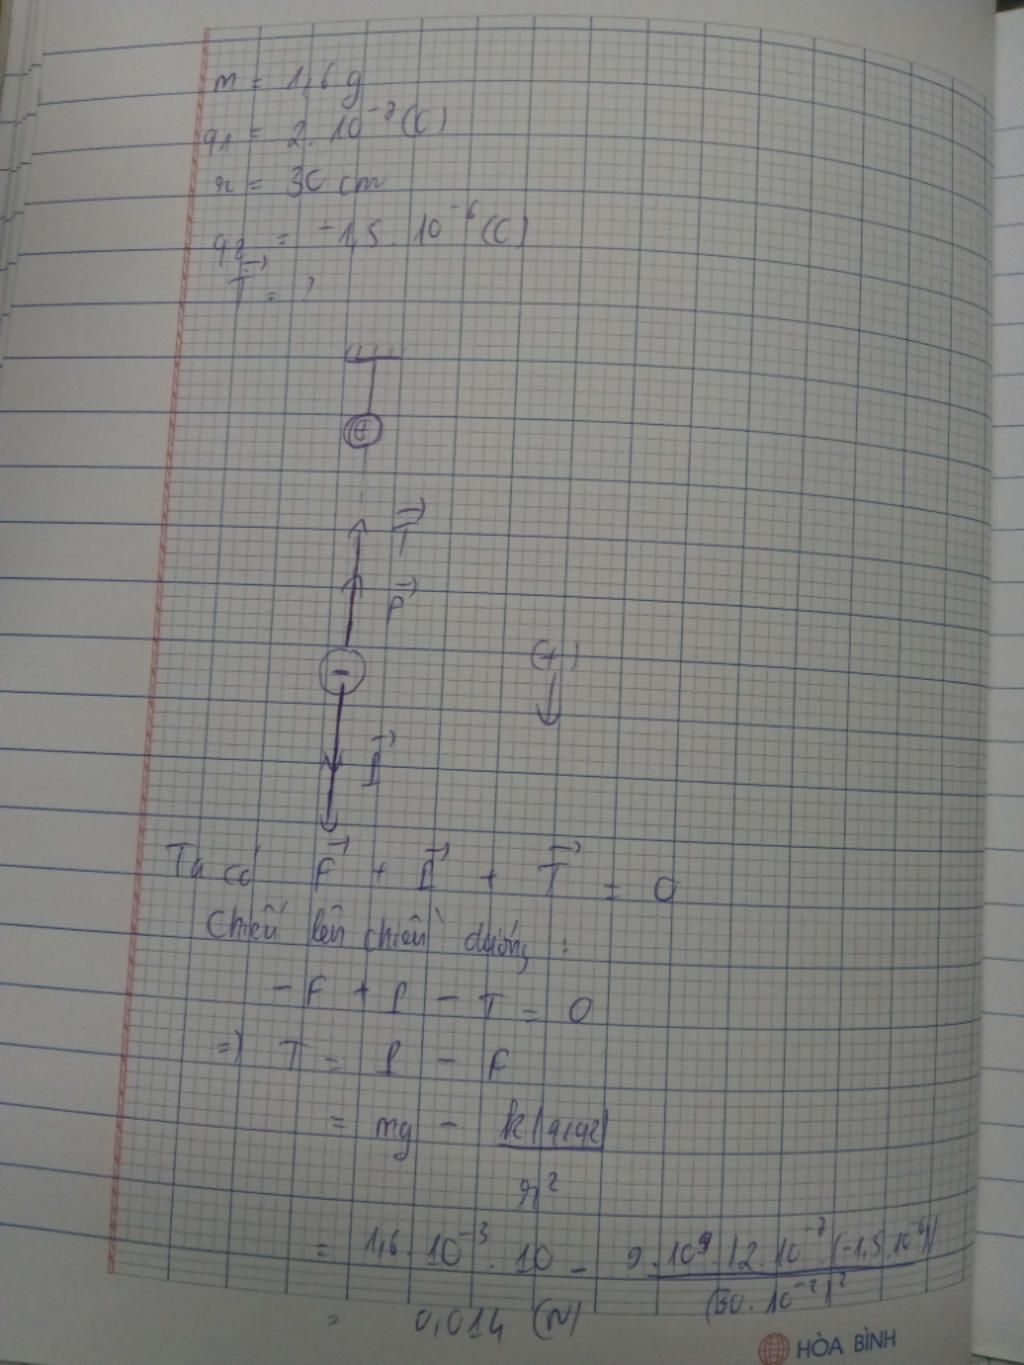 m = 1,6 g
q1 = 2.10^-7 (C)
r = 30 cm
q2 = -1,5.10^-6 (C)
T⃗ = ?
+
T⃗
F⃗
-
(+)
P⃗
Ta có F⃗ + P⃗ + T⃗ = 0
Chiếu lên chiều dương :
- F + P - T = 0
=> T = P - F
= mg - k|q1q2| / r^2
= 1,6.10^-3.10 - 9.10^9.|2.10^-7.(-1,5.10^-6)| / (30.10^-2)^2
= 0,014 (N)
HÒA BÌNH